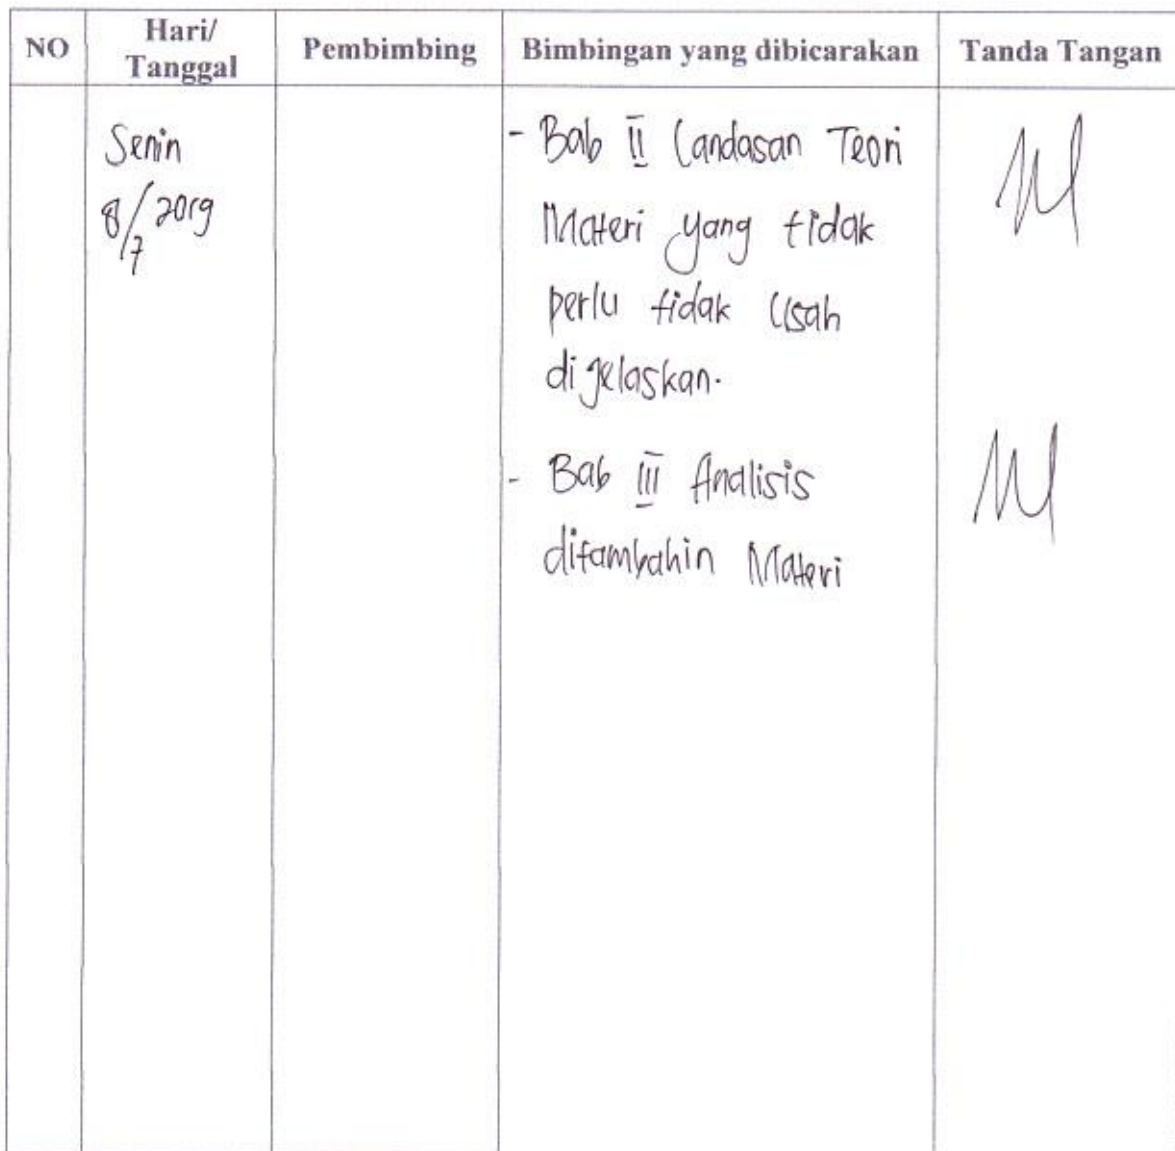 NO Hari/ Tanggal Pembimbing Bimbingan yang dibicarakan Tanda Tangan
Senin
8/7 2019
- Bab II Landasan Teori
Materi yang tidak
perlu tidak usah
dijelaskan.
- Bab III Analisis
ditambahin Materi